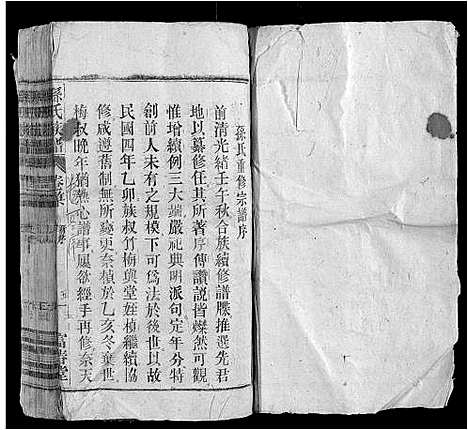 孫氏重修宗譜序
前清光緒壬午秋合族續修譜牒推選先君
地以纂修任其所著序傳讚説皆燦然可觀
惟增續例三大端嚴祀典明派句定年分特
創前人未有之規模下可為法於後世以故
民國四年乙卯族叔竹梅與堂姪楨繼續協
修咸遵舊制無所變更奈楨於乙亥冬棄世
梅叔晚年猶熱心譜事屢欲經手再修奈天
孫氏族譜
富春堂